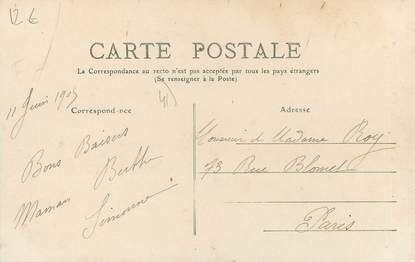 12 €
CARTE POSTALE
La Correspondance au recto n'est pas acceptée par tous les pays étrangers
(Se renseigner à la Poste)
Correspondance
Adresse
11 Juin 1905
Bons Baisers
Maman Berthe
Simonne
Monsieur & Madame Roy
73 Rue Blomet
Paris